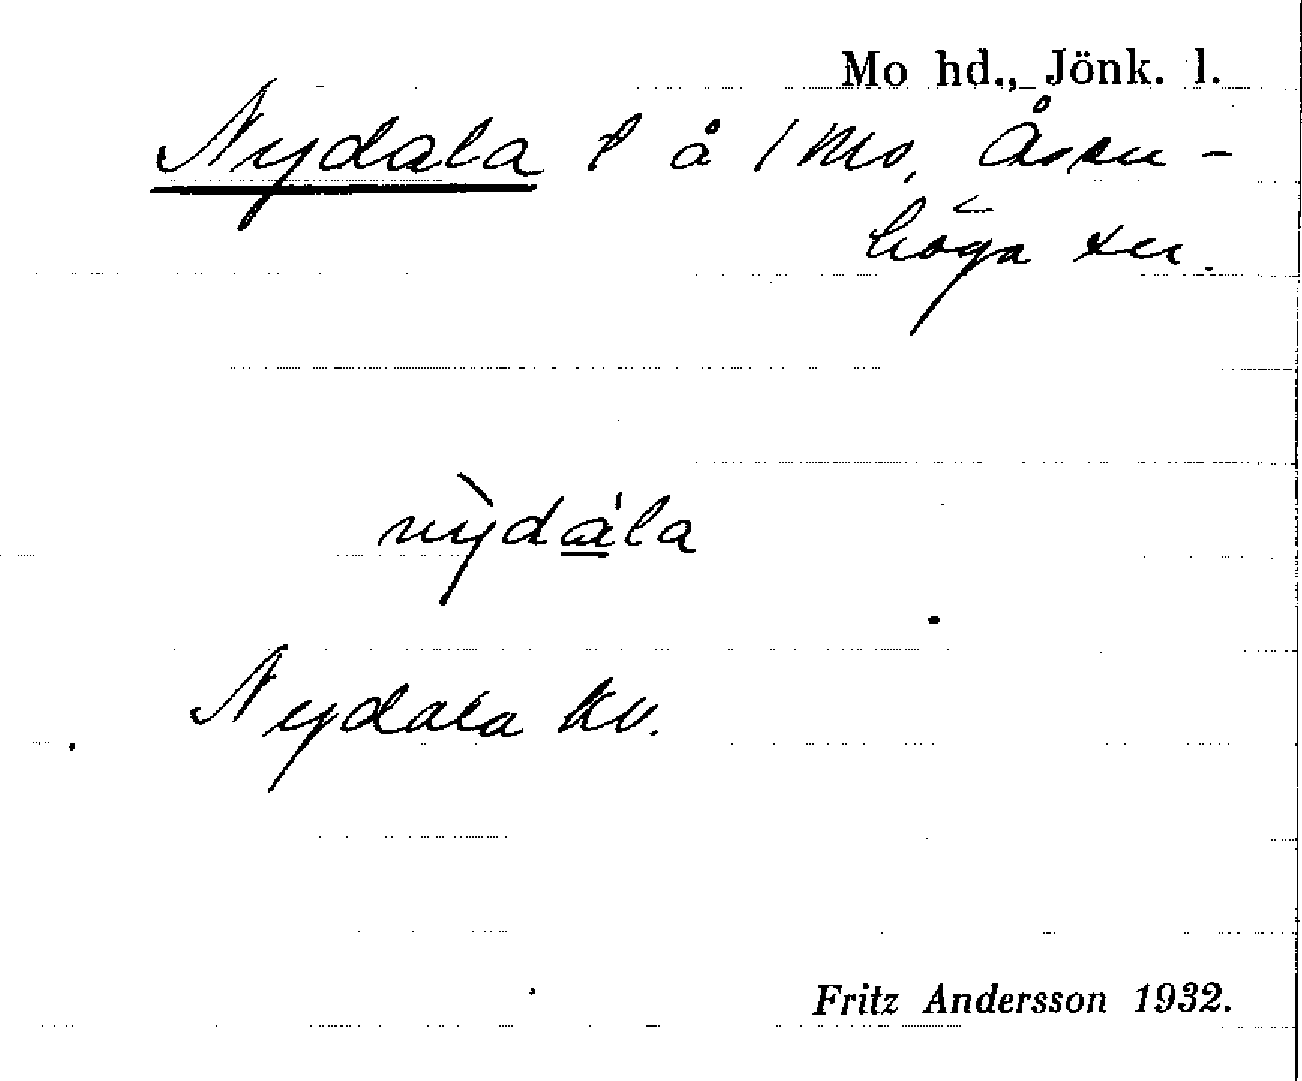 Mo hd., Jönk. l.
Nydala l å 1 Mo, Åsen-
höga sn.
nỳdála
Nydala kv.
Fritz Andersson 1932.